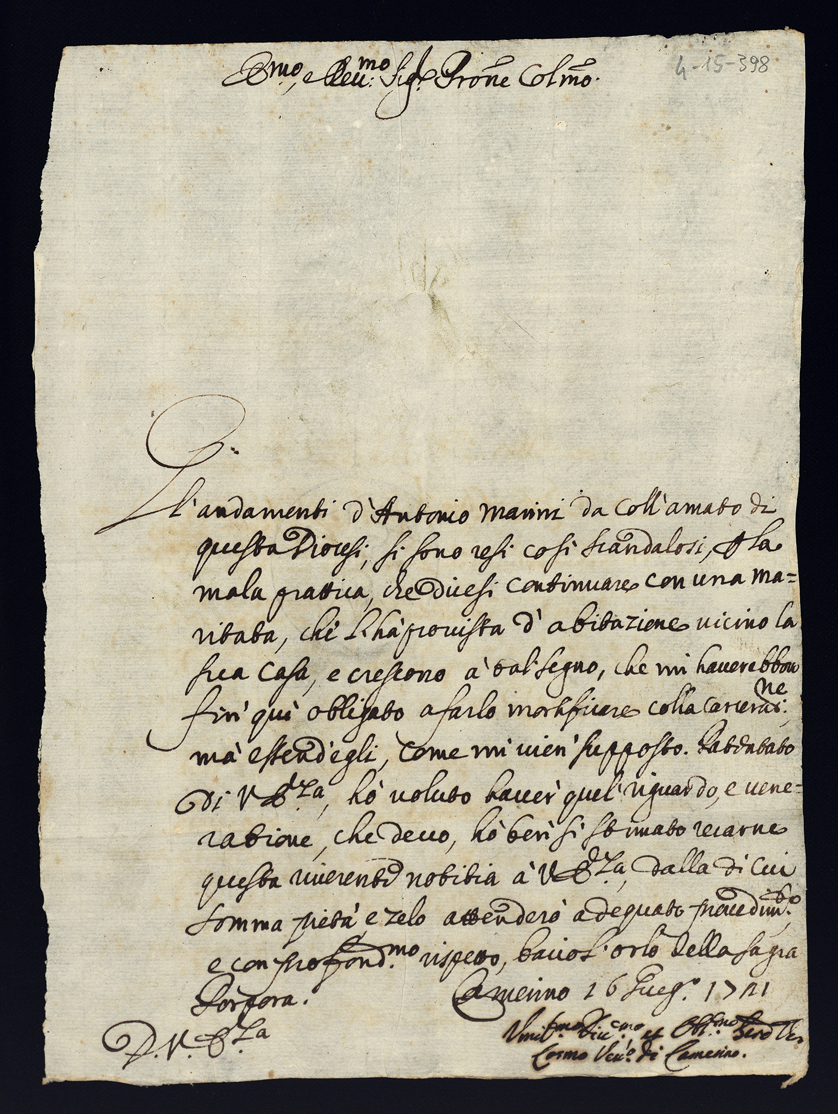 Em.mo, e Reu.mo Sig.r Prone Colmo.
4-15-398
Gl'andamenti d'Antonio Marini da Coll'amato di
questa Diocesi, si sono resi cosi scandalosi, p la
mala prattica, che dicesi continuare con una ma=
ritata, che l'hà prouista d'abitazione uicino la
sua Casa, e crescono à tal segno, che mi hauerebbon
fin' quì obligato a farlo mortificare colla Carcerne
mà essend'egli, come mi uien' supposto.
Di V. E.za, hò uoluto hauer' quel' riguardo, e uene=
ratione, che deuo, hò ben si stimato recarne
questa riuerente notitia à V. E.za, dalla di cui
somma pietà, e zelo attenderò adeguato prouedim.to,
e con profond.mo rispetto, bacio l'orlo della sagra
Porpora. Camerino 16 1711
D. V. E.za
Umil.mo et Obl.mo
Cosmo Vesc.o di Camerino.